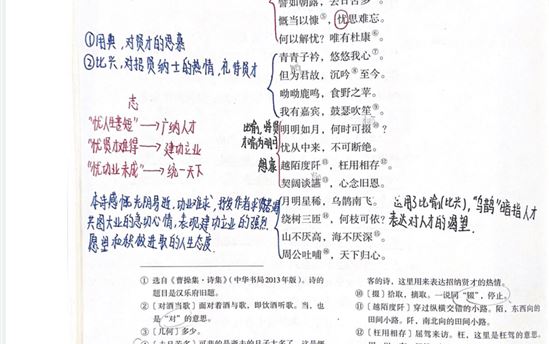 譬如朝露，去日苦多
慨当以慷⑤，忧思难忘。
何以解忧？唯有杜康⑥。
青青子衿，悠悠我心⑦。
但为君故，沉吟⑧至今。
呦呦鹿鸣，食野之苹。
我有嘉宾，鼓瑟吹笙⑨。
明明如月，何时可掇⑩？
忧从中来，不可断绝。
越陌度阡⑪，枉用相存⑫。
契阔谈䜩⑬，心念旧恩。
月明星稀，乌鹊南飞。
绕树三匝⑭，何枝可依？
山不厌高，海不厌深⑮。
周公吐哺⑯，天下归心。
①用典，对贤才的思慕
②比兴，对招贤纳士的热情，礼待贤才
志
"忧人生苦短"→广纳人才
"忧贤才难得"→建功立业
"忧功业未成"→统一天下
比喻，将贤
才喻为明月
本诗感慨光阴易逝，功业难求，
共图大业的急切心情，表现建功立业的强烈
愿望和积极进取的人生态度.
运用了比喻(比兴)，"乌鹊"暗指人才
表达对人才的渴望.
① 选自《曹操集·诗集》（中华书局2013年版）。诗的
题目是汉乐府旧题。
② 〔对酒当歌〕面对着酒与歌，即饮酒听歌。当，也
是"对"的意思。
③ 〔几何〕多少。
客的诗，这里用来表达招纳贤才的热情。
⑩ 〔掇〕拾取，摘取。一说同"辍"，停止。
⑪ 〔越陌度阡〕穿过纵横交错的小路。陌，东西向的
田间小路。阡，南北向的田间小路。
⑫ 〔枉用相存〕屈驾来访。枉，这里是枉驾的意思。